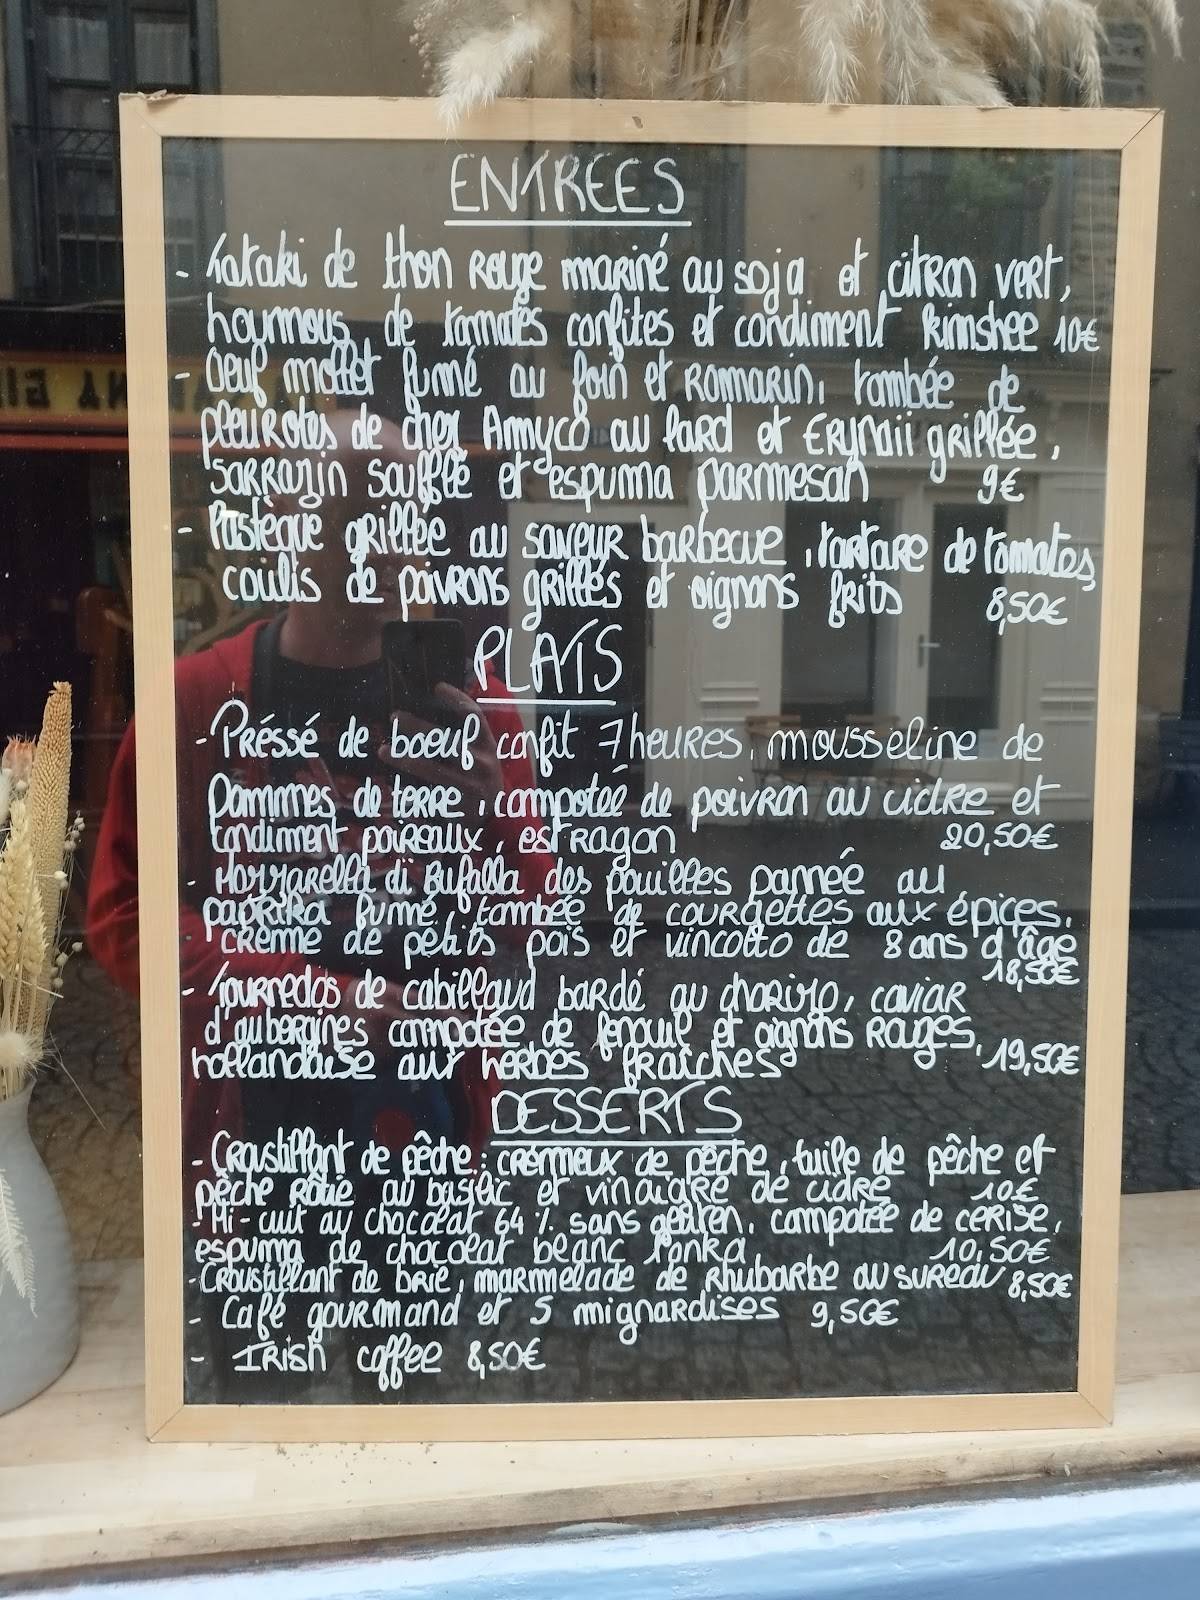 ENTREES
- Tataki de thon Rouge mariné au soja et citron vert,
houmous de tomates confites et condiment kimshee 10€
- Oeuf mollet fumé au foin et Romarin, tombée de
pleurotes de chez Amyco au lard et Erynaii grillée,
sarrazin soufflé et espuma parmesan 9€
- Pastèque grillée au saveur barbecue, tartare de tomates,
coulis de poivrons grillés et oignons frits 8,50€
PLATS
- Préssé de boeuf confit 7 heures, mousseline de
pommes de terre, compotée de poivron au cidre et
condiment poireaux, estragon 20,50€
- Mozzarella di Bufalla des pouilles pannée au
paprika fumé, tombée de courgettes aux épices,
crème de petits pois et vincotto de 8 ans d'âge
18,50€
- Tournedos de cabillaud bardé au chorizo, caviar
d'aubergines compotée de fenouil et oignons Rouges,
hollandaise aux herbes fraîches 19,50€
DESSERTS
- Croustillant de pêche : crémeux de pêche, tuile de pêche et
pêche rôtie au basilic et vinaigre de cidre 10€
- Mi-cuit au chocolat 64% sans gluten, compotée de cerise,
espuma de chocolat blanc Tonka 10,50€
- Croustillant de brie, marmelade de Rhubarbe au sureau 8,50€
- Café gourmand et 5 mignardises 9,50€
- Irish coffee 8,50€